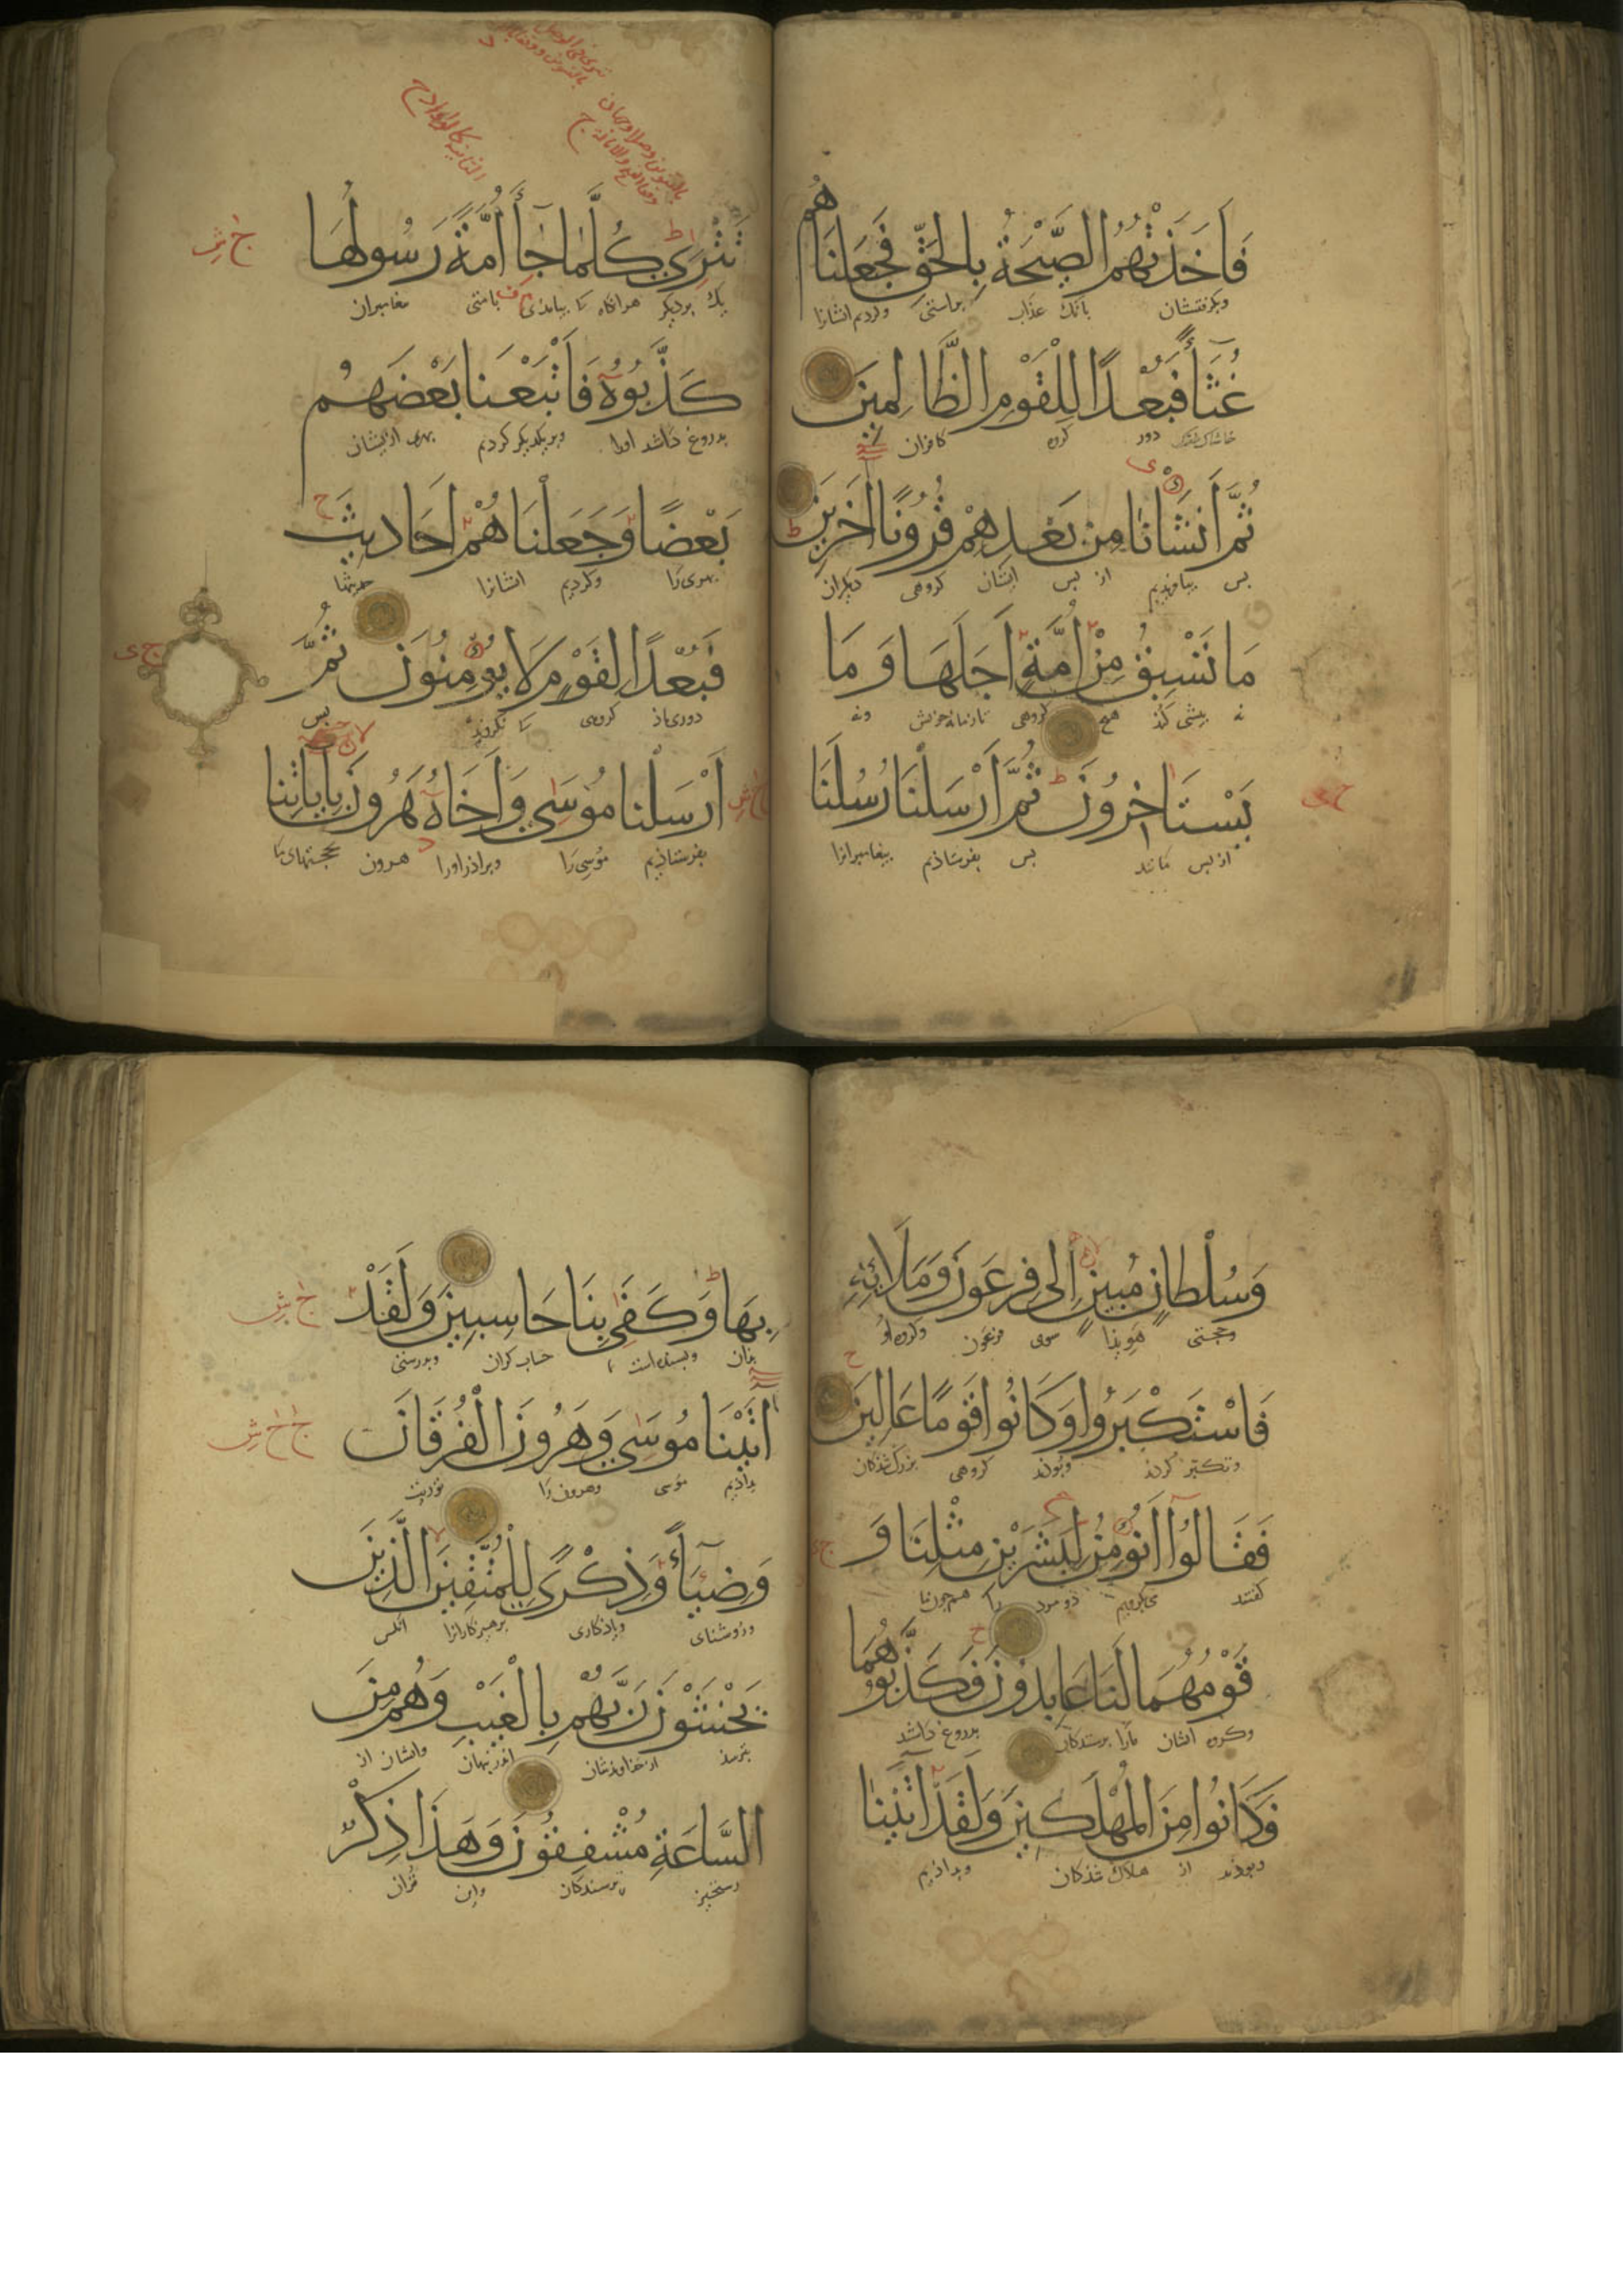 فَاَخَذَتْهُمُ الصَّيْحَةُ بِالْحَقِّ فَجَعَلْنَاهُمْ
وبکرفتشان بانک عذاب براستی وکردیم ایشانرا
غُثَآءً فَبُعْدًا لِلْقَوْمِ الظَّالِمِينَ
دور کروه کافران
ثُمَّ اَنْشَانَا مِنْ بَعْدِهِمْ قُرُونًا اٰخَرِينَ
بس بیافریدیم از بس ایشان کروهی دیکران
مَا تَسْبِقُ مِنْ اُمَّةٍ اَجَلَهَا وَمَا
نه بیشی کند هیچ کروهی ونه
يَسْتَاخِرُونَ ثُمَّ اَرْسَلْنَا رُسُلَنَا
از بس مانند بس بفرستاذیم بیغامبرانرا
تَتْرَى كُلَّمَا جَآءَ اُمَّةً رَسُولُهَا
یک بر دیکر هرانکاه کا بیامذی بامتی
كَذَّبُوهُ فَاَتْبَعْنَا بَعْضَهُمْ
بدروغ داشتند اورا کردیم بهری ازیشان
بَعْضًا وَجَعَلْنَاهُمْ اَحَادِيثَ
بهری را وکردیم ایشانرا حدیثها
فَبُعْدًا لِقَوْمٍ لَا يُؤْمِنُونَ ثُمَّ
دوری باذ کروهی کا نکروند بس
اَرْسَلْنَا مُوسٰى وَاَخَاهُ هٰرُونَ بِاٰيَاتِنَا
بفرستاذیم موسی را وبراذر اورا هرون بحجتهای ما
وَسُلْطَانٍ مُبِينٍ اِلٰى فِرْعَوْنَ وَمَلَائِهِ
وحجتی هویذا سوی فرعون وکروه او
فَاسْتَكْبَرُوا وَكَانُوا قَوْمًا عَالِينَ
وتکبر کردند وبوذند کروهی بزرک شذکان
فَقَالُوا اَنُؤْمِنُ لِبَشَرَيْنِ مِثْلِنَا وَ
کفتند دو مرد را همچون ما
قَوْمُهُمَا لَنَا عَابِدُونَ فَكَذَّبُوهُمَا
وکروه ایشان مارا برستندکان بدروغ داشتند
فَكَانُوا مِنَ الْمُهْلَكِينَ وَلَقَدْ اٰتَيْنَا
وبوذند از هلاک شذکان وبداذیم
بِهَا وَكَفٰى بِنَا حَاسِبِينَ وَلَقَدْ
بذان وبسنده است ما حساب کران وبدرستی
اٰتَيْنَا مُوسٰى وَهٰرُونَ الْفُرْقَانَ
بداذیم موسی وهرون را توریت
وَضِيَآءً وَذِكْرًى لِلْمُتَّقِينَ الَّذِينَ
وروشنای ویاذکاری برهیزکارانرا انکس
يَخْشَوْنَ رَبَّهُمْ بِالْغَيْبِ وَهُمْ مِنَ
بترسند از خذاوندشان اندر نهان وایشان از
السَّاعَةِ مُشْفِقُونَ وَهٰذَا ذِكْرٌ
رستخیز ترسندکان واین قران